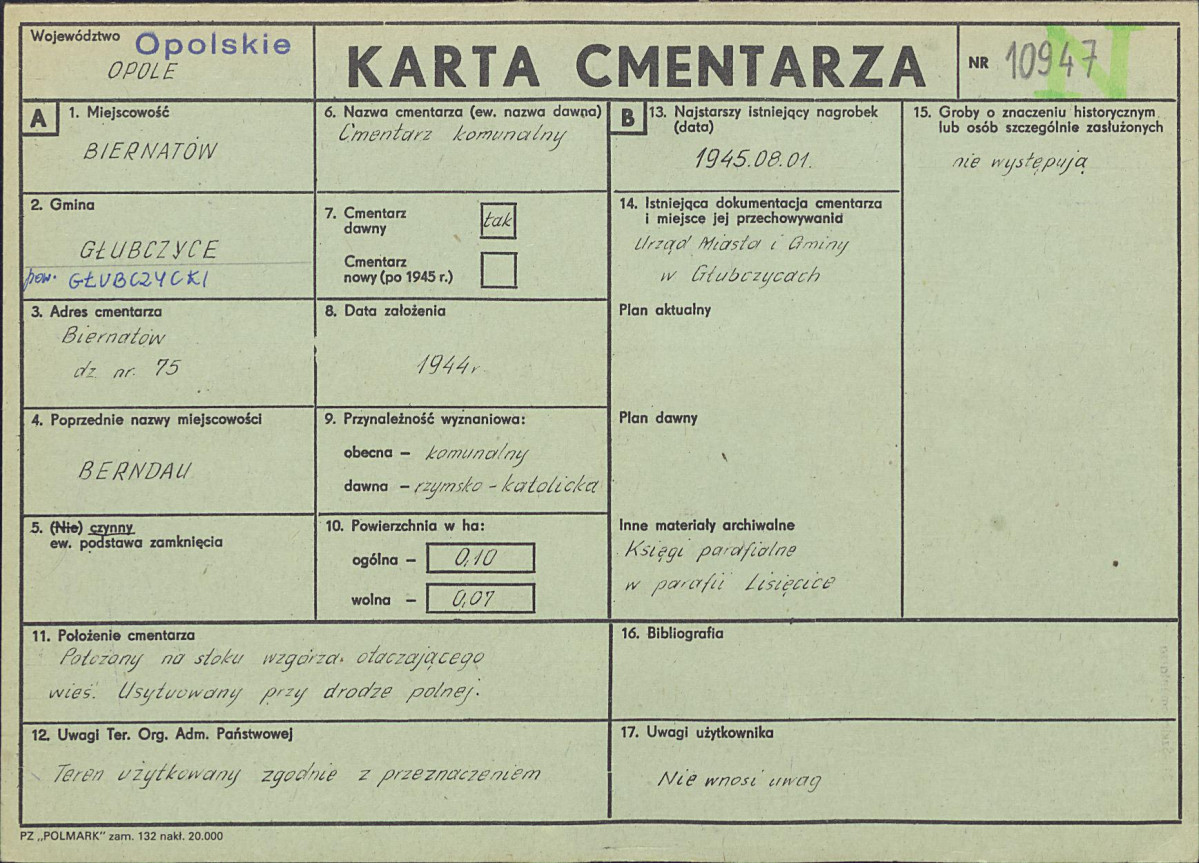 Województwo Opolskie
OPOLE
KARTA CMENTARZA
NR 10947
N
A
1. Miejscowość
BIERNATÓW
2. Gmina
GŁUBCZYCE
pow. GŁUBCZYCKI
3. Adres cmentarza
Biernatów
dz. nr. 75
4. Poprzednie nazwy miejscowości
BERNDAU
5. (Nie) czynny
ew. podstawa zamknięcia
6. Nazwa cmentarza (ew. nazwa dawna)
Cmentarz komunalny
7. Cmentarz
dawny
tak
Cmentarz
nowy (po 1945 r.)
8. Data założenia
1944r
9. Przynależność wyznaniowa:
obecna – komunalny
dawna – rzymsko-katolicka
10. Powierzchnia w ha:
ogólna – 0,10
wolna – 0,07
11. Położenie cmentarza
Położony na stoku wzgórza, otaczającego
wieś. Usytuowany przy drodze polnej.
12. Uwagi Ter. Org. Adm. Państwowej
Teren użytkowany zgodnie z przeznaczeniem
B
13. Najstarszy istniejący nagrobek
(data)
1945.08.01.
14. Istniejąca dokumentacja cmentarza
i miejsce jej przechowywania
Urząd Miasta i Gminy
w Głubczycach
Plan aktualny
Plan dawny
Inne materiały archiwalne
Księgi parafialne
w parafii Lisięcice
15. Groby o znaczeniu historycznym
lub osób szczególnie zasłużonych
nie występują
16. Bibliografia
17. Uwagi użytkownika
Nie wnosi uwag
PZ „POLMARK" zam. 132 nakł. 20.000